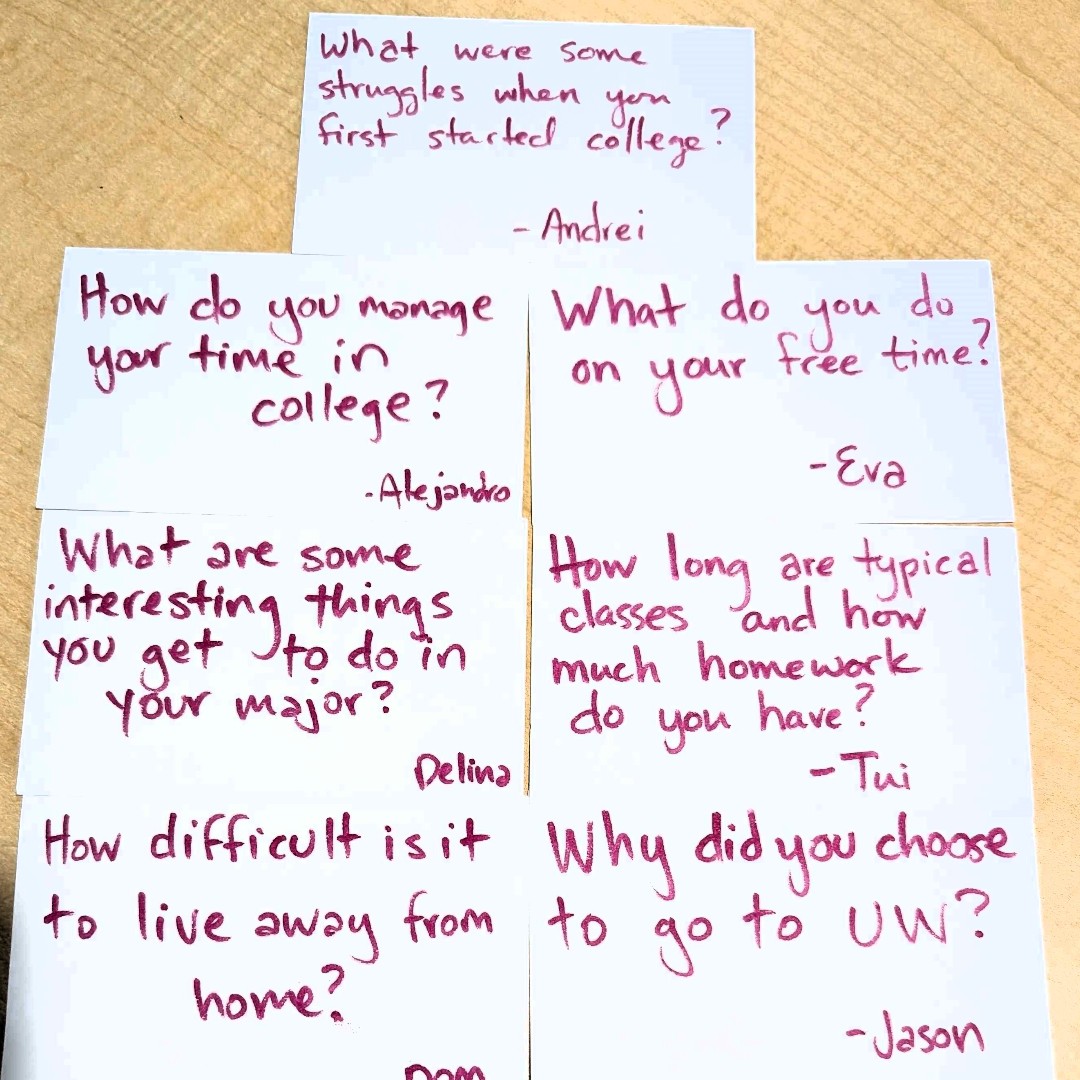 What were some
struggles when you
first started college?
- Andrei
How do you manage
your time in
college?
- Alejandro
What do you do
on your free time?
- Eva
What are some
interesting things
you get to do in
your major?
Delina
How long are typical
classes and how
much homework
do you have?
- Tui
How difficult is it
to live away from
home?
Dom
Why did you choose
to go to UW?
- Jason